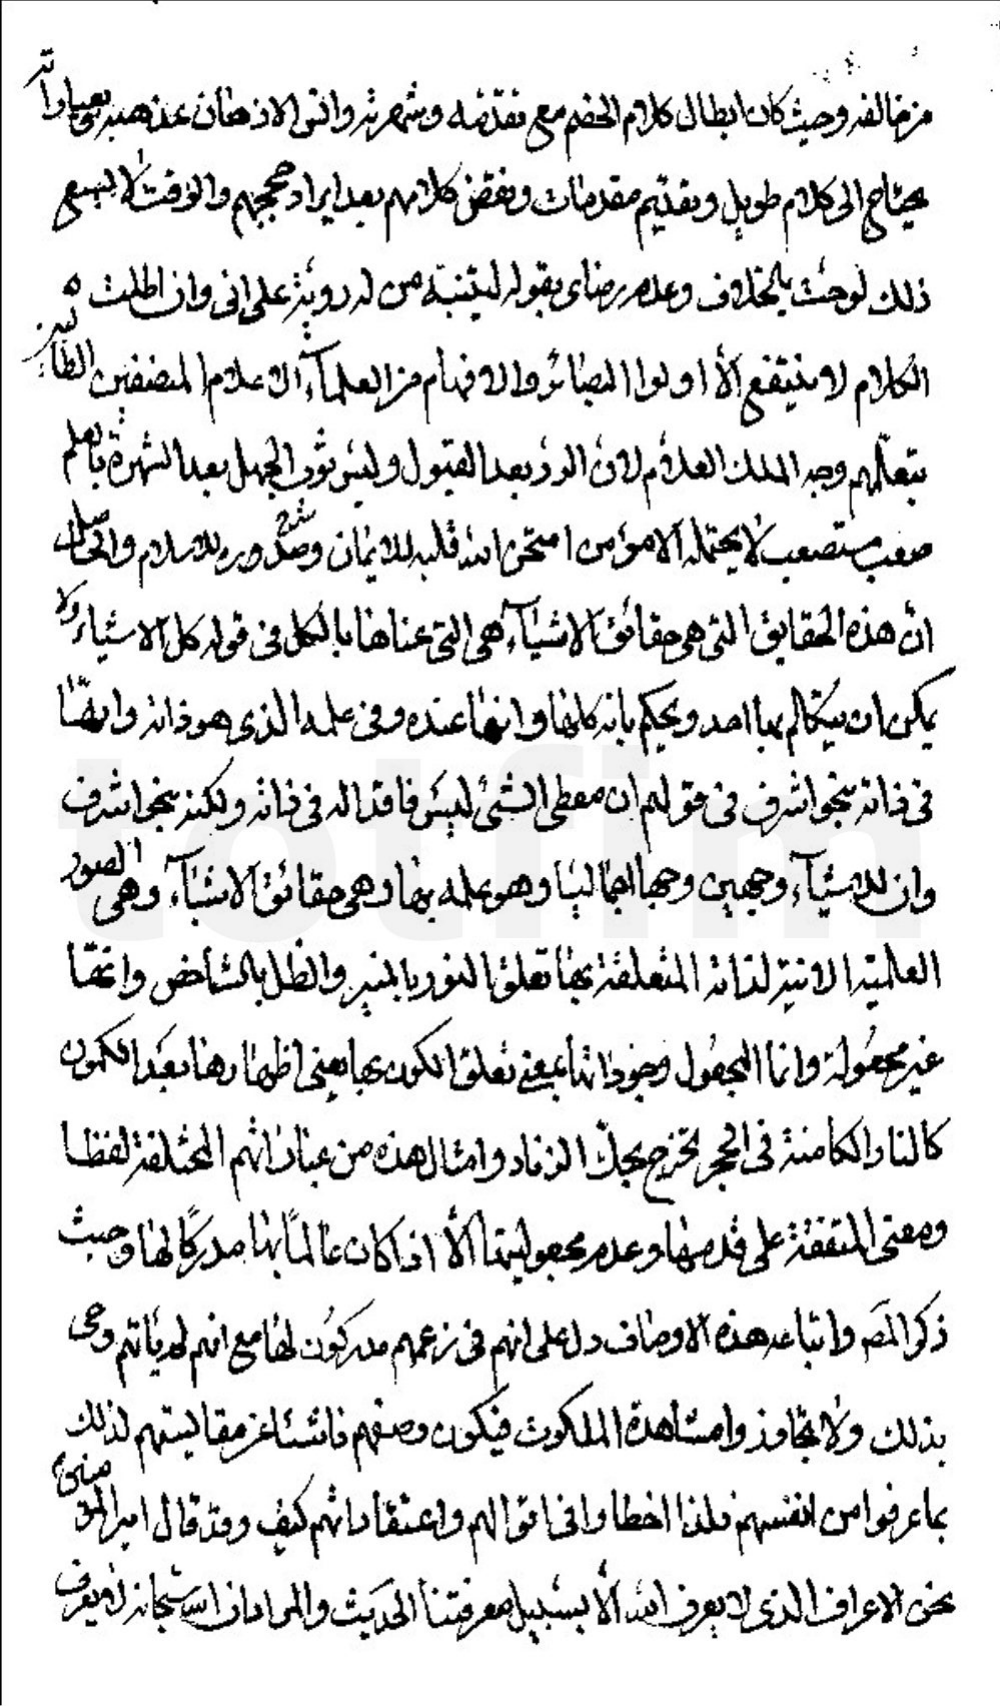 من خالفه وحيث كان ابطال كلام الخصم مع تقدمه وشهرته وانس الاذهان عذهبه بعباراته
يحتاج الى كلام طويل وتقديم مقدمات ونقض كلامهم بعد ايراد حججهم والوقت لا يسع
ذلك لوحت بالخلاف وعدم رضاى بقوله ليتنبه من له روية على انى وان اطلت
الكلام لا ينتفع الا اولوا البصائر والافهام من العلمآء الاعلام المنصفين الطالبين
بتعلمهم وجه الملك العلام لان الرد بعد القبول وليس ثوب الجهل بعد الشهرة بالعلم
صعب مستصعب لا يحتمله الا مؤمن امتحن الله قلبه للايمان وشرح صدره للاسلام والحاصل
ان هذه الحقايق التى هى حقائق الاشيآء هى التى عناها بالكل فى قوله كل الاشياء ولا
يمكن ان يتكلم بها احد ويحكم بانه كلها وانها عنده وفى علمه الذى هو ذاته وانها
فى ذاته بنحو اشرف فى قولهم ان معطى الشئ ليس فاقدا له فى ذاته ولكنه بنحو اشرف
وان للاشيآء وجهين وجها اجماليا وهو علمه بها وهى حقائق الاشيآء وهى الصور
العلمية الانية لذاته المتعلقة بها تعلق النور بالمنير والظل بالشاخص وانها
غير مجعولة وانما المجعول وجوداتها بمعنى تعلق الكون بها يعنى اظهارها بعد الكمون
كالنار الكامنة فى الحجر تخرج بحك الزناد وامثال هذه من عباراتهم المختلفة لفظا
ومعنى المتفقة على قدمها وعدم مجعوليتها الا اذا كان عالمًا بها مدركًا لها وحيث
ذكر المصَ واتباعه هذه الاوصاف دل على انهم فى زعمهم مدركون لها مع انهم لم ياتهم وحى
بذلك ولا تجاوزوا مشاهدة الملكوت فيكون وصفهم ناشئا عن مقايستهم لذلك
بما عرفوا من انفسهم فلذا اخطاوا فى اقوالهم واعتقاداتهم كيف وقد قال امير المؤمنين ع
نحن الاعراف الذى لا يعرف الله الا بسبيل معرفتنا الحديث والمراد ان الله سبحانه لا يعرف